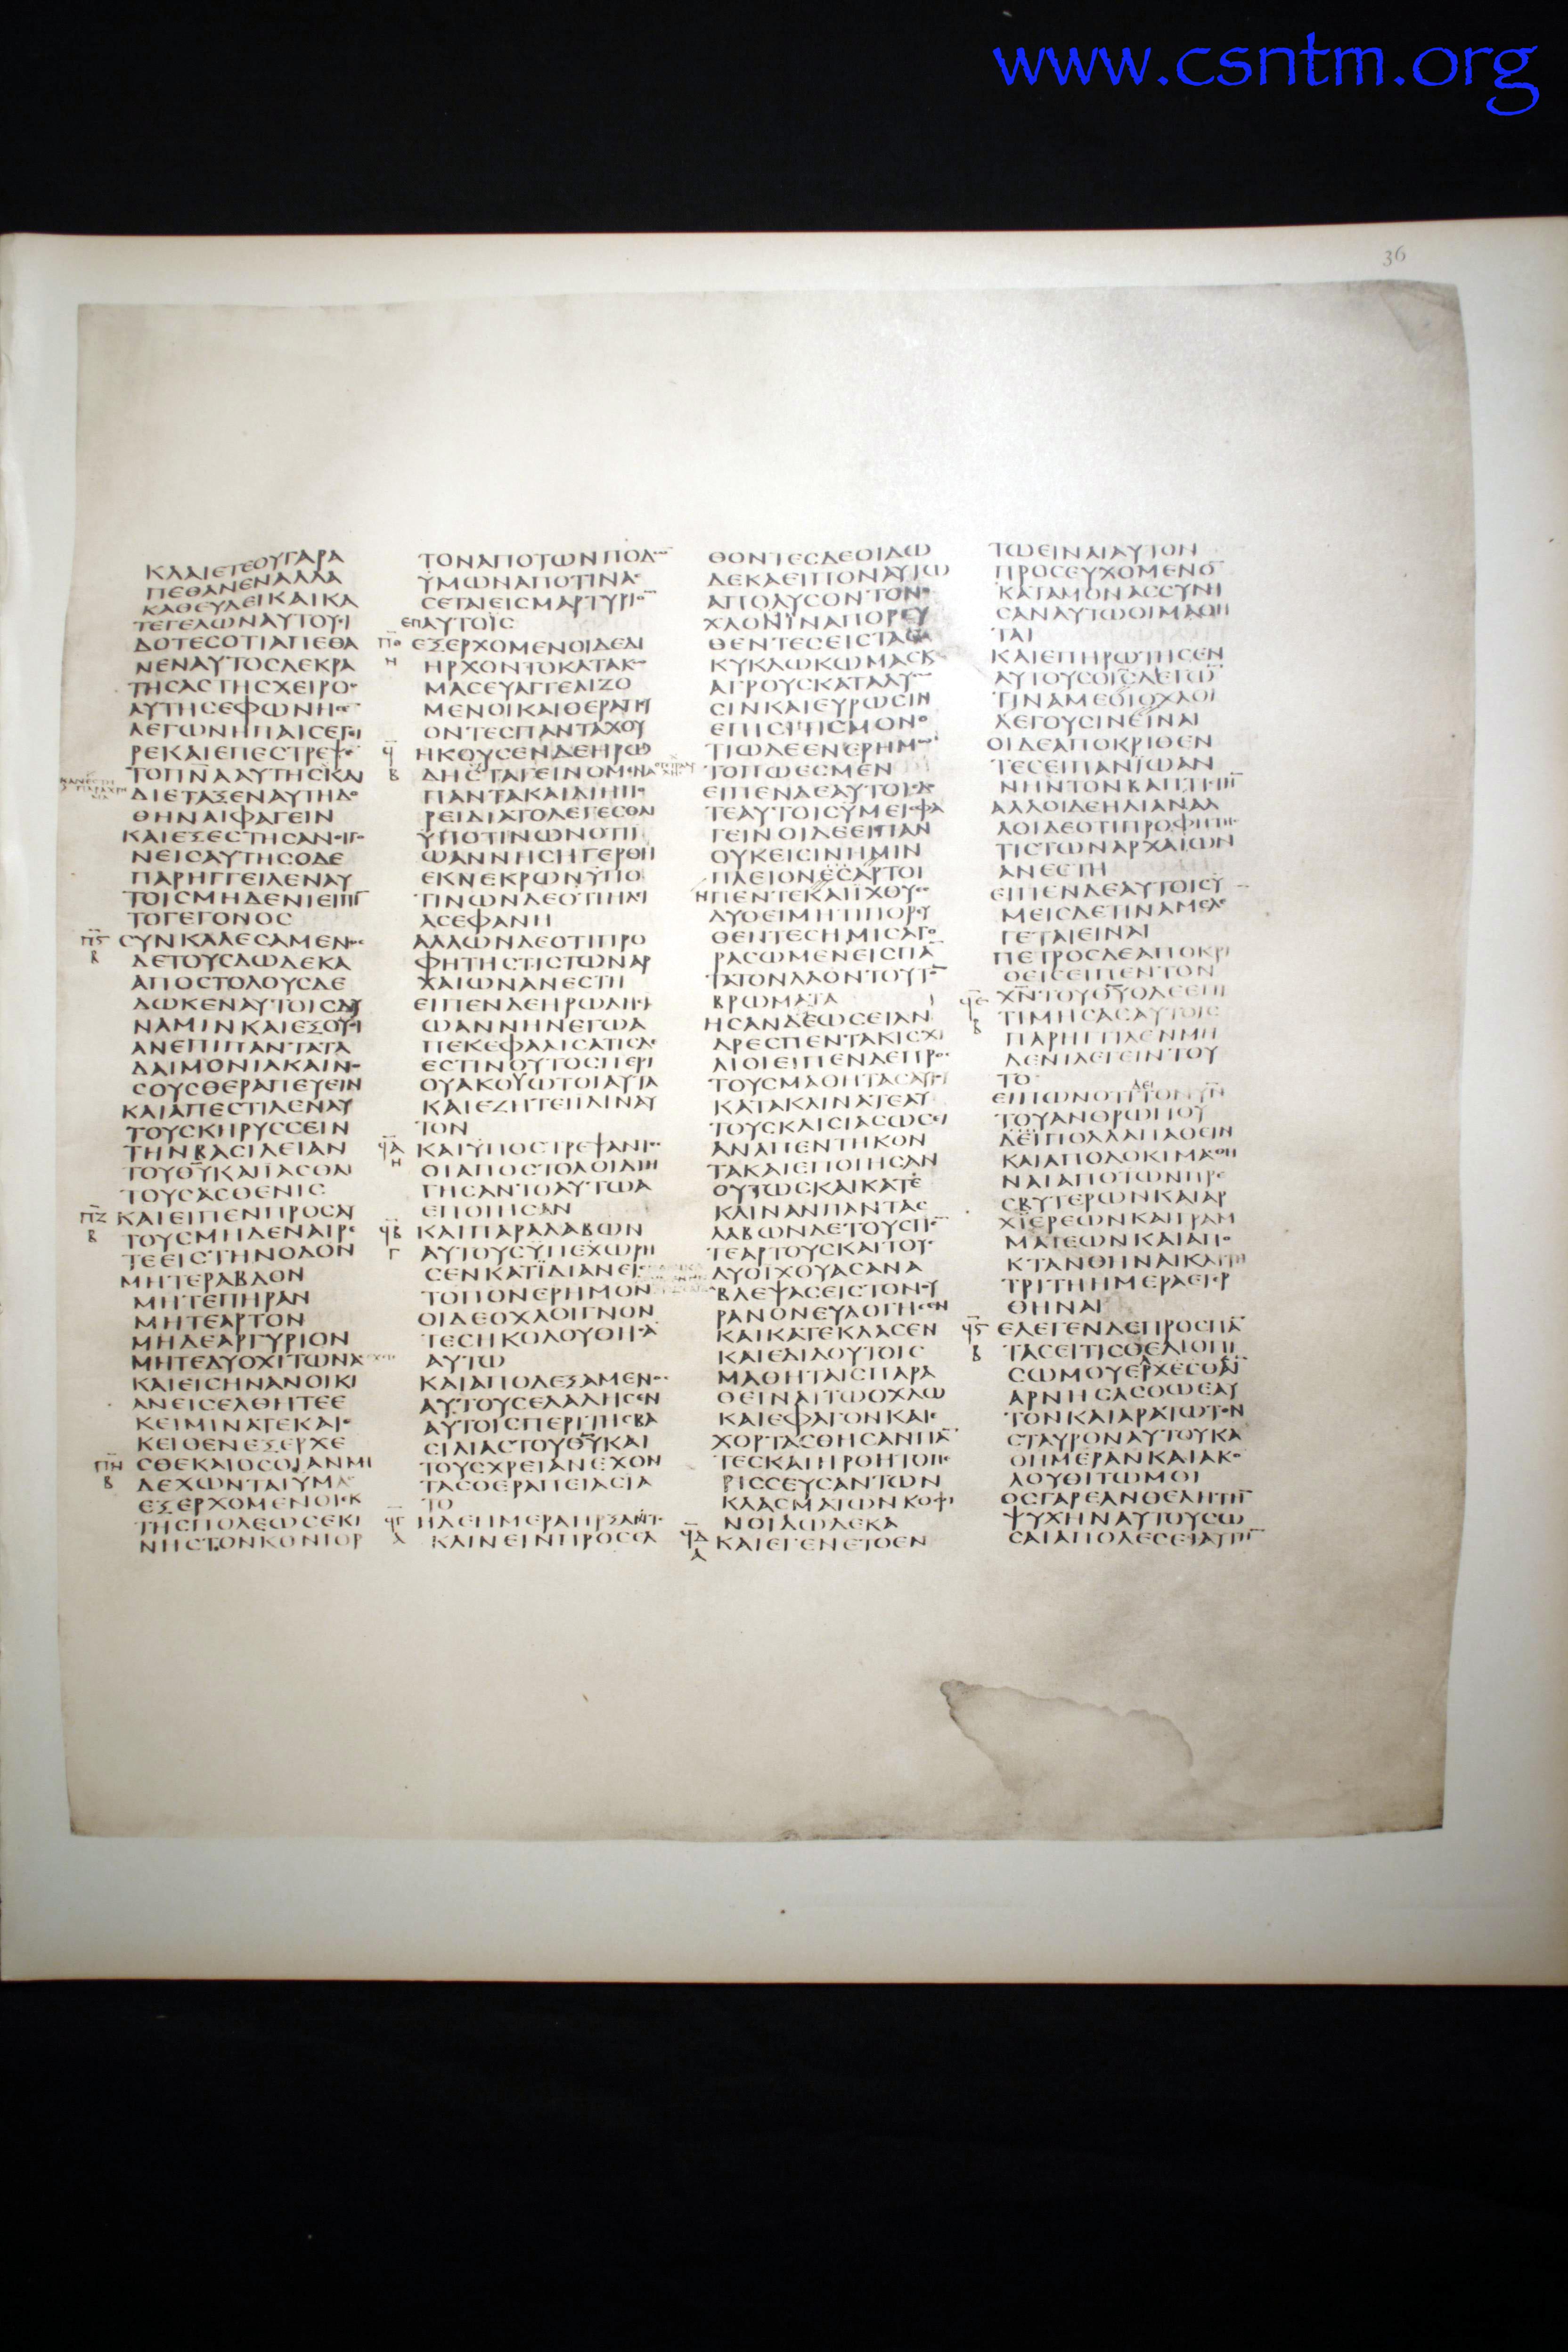 www.csntm.org
36
ΚΛΑΙΕΤΕΟΥΓΑΡΑ
ΠΕΘΑΝΕΝΑΛΛΑ
ΚΑΘΕΥΔΕΙΚΑΙΚΑ
ΤΕΓΕΛΩΝΑΥΤΟΥΙ
ΔΟΤΕСΟΤΙΑΠΕΘΑ
ΝΕΝΑΥΤΟСΔΕΚΡΑ
ΤΗСΑСΤΗСΧΕΙΡΟ
ΑΥΤΗСΕΦΩΝΗ
ΛΕΓΩΝΗΠΑΙСΕΓΙ
ΡΕΚΑΙΕΠΕСΤΡΕΨΕ
ΤΟΠΝΑΑΥΤΗСΚΑΙ
ΔΙΕΤΑΞΕΝΑΥΤΗΔΟ
ΘΗΝΑΙΦΑΓΕΙΝ
ΚΑΙΕΞΕСΤΗСΑΝΟΙΓΟ
ΝΕΙСΑΥΤΗСΟΔΕ
ΠΑΡΗΓΓΕΙΛΕΝΑΥ
ΤΟΙСΜΗΔΕΝΙΕΙΠΙ
ΤΟΓΕΓΟΝΟС
СΥΝΚΑΛΕСΑΜΕΝΟС
ΔΕΤΟΥСΔΩΔΕΚΑ
ΑΠΟСΤΟΛΟΥСΔΕ
ΔΩΚΕΝΑΥΤΟΙСΔΥ
ΝΑΜΙΝΚΑΙΕΞΟΥСΙ
ΑΝΕΠΙΠΑΝΤΑΤΑ
ΔΑΙΜΟΝΙΑΚΑΙΝΟ
СΟΥСΘΕΡΑΠΕΥΕΙΝ
ΚΑΙΑΠΕСΤΙΛΕΝΑΥ
ΤΟΥСΚΗΡΥССΕΙΝ
ΤΗΝΒΑСΙΛΕΙΑΝ
ΤΟΥΘΥΚΑΙΙΑСΘΑΙ
ΤΟΥСΑСΘΕΝΙС
ΚΑΙΕΙΠΕΝΠΡΟСΑΥ
ΤΟΥСΜΗΔΕΝΑΙΡΕ
ΤΕΕΙСΤΗΝΟΔΟΝ
ΜΗΤΕΡΑΒΔΟΝ
ΜΗΤΕΠΗΡΑΝ
ΜΗΤΕΑΡΤΟΝ
ΜΗΔΕΑΡΓΥΡΙΟΝ
ΜΗΤΕΔΥΟΧΙΤΩΝΑ
ΚΑΙΕΙСΗΝΑΝΟΙΚΙ
ΑΝΕΙСΕΛΘΗΤΕΕ
ΚΕΙΜΙΝΑΤΕΚΑΙΕ
ΚΕΙΘΕΝΕΞΕΡΧΕ
СΘΕΚΑΙΟСΟΙΑΝΜΙ
ΔΕΧΩΝΤΑΙΥΜΑС
ΕΞΕΡΧΟΜΕΝΟΙΕΚ
ΤΗСΠΟΛΕΩСΕΚΙ
ΝΗСΤΟΝΚΟΝΙΟΡ
ΤΟΝΑΠΟΤΩΝΠΟΔΩ
ΥΜΩΝΑΠΟΤΙΝΑ
СΕΤΑΙΕΙСΜΑΡΤΥΡΙΟ
ΕΠΑΥΤΟΙС
ΕΞΕΡΧΟΜΕΝΟΙΔΕΔΙ
ΗΡΧΟΝΤΟΚΑΤΑΚΩ
ΜΑСΕΥΑΓΓΕΛΙΖΟ
ΜΕΝΟΙΚΑΙΘΕΡΑΠΕΥ
ΟΝΤΕСΠΑΝΤΑΧΟΥ
ΗΚΟΥСΕΝΔΕΗΡΩ
ΔΗСΤΑΓΕΙΝΟΜΕΝΑ
ΠΑΝΤΑΚΑΙΔΙΗΠΟ
ΡΕΙΔΙΑΤΟΛΕΓΕСΘΑΙ
ΥΠΟΤΙΝΩΝΟΤΙΙ
ΩΑΝΝΗСΗΓΕΡΘΗ
ΕΚΝΕΚΡΩΝΥΠΟ
ΤΙΝΩΝΔΕΟΤΙΗΛΙ
ΑСΕΦΑΝΗ
ΑΛΛΩΝΔΕΟΤΙΠΡΟ
ΦΗΤΗСΤΙСΤΩΝΑΡ
ΧΑΙΩΝΑΝΕСΤΗ
ΕΙΠΕΝΔΕΗΡΩΔΗСΙ
ΩΑΝΝΗΝΕΓΩΑ
ΠΕΚΕΦΑΛΙСΑΤΙСΔΕ
ΕСΤΙΝΟΥΤΟСΠΕΡΙ
ΟΥΑΚΟΥΩΤΟΙΑΥΤΑ
ΚΑΙΕΖΗΤΕΙΙΔΙΝΑΥ
ΤΟΝ
ΚΑΙΥΠΟСΤΡΕΨΑΝΤΕС
ΟΙΑΠΟСΤΟΛΟΙΔΙΗ
ΓΗСΑΝΤΟΑΥΤΩΑ
ΕΠΟΙΗСΑΝ
ΚΑΙΠΑΡΑΛΑΒΩΝ
ΑΥΤΟΥСΥΠΕΧΩΡΗ
СΕΝΚΑΤΙΔΙΑΝΕΙС
ΤΟΠΟΝΕΡΗΜΟΝ
ΟΙΔΕΟΧΛΟΙΓΝΟΝ
ΤΕСΗΚΟΛΟΥΘΗСΑ
ΑΥΤΩ
ΚΑΙΑΠΟΔΕΞΑΜΕΝΟС
ΑΥΤΟΥСΕΛΑΛΗСΕΝ
ΑΥΤΟΙСΠΕΡΙΤΗСΒΑ
СΙΛΙΑСΤΟΥΘΥΚΑΙ
ΤΟΥСΧΡΕΙΑΝΕΧΟΝ
ΤΑСΘΕΡΑΠΕΙΑСΙΑ
ΤΟ
ΗΔΕΗΜΕΡΑΗΡΞΑΤΟ
ΚΛΙΝΕΙΝΠΡΟСΕΛ
ΘΟΝΤΕСΔΕΟΙΔΩ
ΔΕΚΑΕΙΠΟΝΑΥΤΩ
ΑΠΟΛΥСΟΝΤΟΝΟ
ΧΛΟΝΙΝΑΠΟΡΕΥ
ΘΕΝΤΕСΕΙСΤΑС
ΚΥΚΛΩΚΩΜΑСΚΑΙ
ΑΓΡΟΥСΚΑΤΑΛΥСΩ
СΙΝΚΑΙΕΥΡΩСΙΝ
ΕΠΙСΙΤΙСΜΟΝΟ
ΤΙΩΔΕΕΝΕΡΗΜΩ
ΤΟΠΩΕСΜΕΝ
ΕΙΠΕΝΔΕΑΥΤΟΙСΔΟ
ΤΕΑΥΤΟΙСΥΜΕΙСΦΑ
ΓΕΙΝΟΙΔΕΕΙΠΑΝ
ΟΥΚΕΙСΙΝΗΜΙΝ
ΠΛΕΙΟΝΕСΑΡΤΟΙ
ΗΠΕΝΤΕΚΑΙΙΧΘΥΕС
ΔΥΟΕΙΜΗΤΙΠΟΡΕΥ
ΘΕΝΤΕСΗΜΙСΑΓΟ
ΡΑСΩΜΕΝΕΙСΠΑ
ΤΑΤΟΝΛΑΟΝΤΟΥΤΟ
ΒΡΩΜΑΤΑ
ΗСΑΝΔΕΩСΕΙΑΝ
ΔΡΕСΠΕΝΤΑΚΙСΧΙ
ΛΙΟΙΕΙΠΕΝΔΕΠΡΟС
ΤΟΥСΜΑΘΗΤΑСΑΥΤΟΥ
ΚΑΤΑΚΛΙΝΑΤΕΑΥ
ΤΟΥСΚΛΙСΙΑСΩСΕΙ
ΑΝΑΠΕΝΤΗΚΟΝ
ΤΑΚΑΙΕΠΟΙΗСΑΝ
ΟΥΤΩСΚΑΙΚΑΤΕ
ΚΛΙΝΑΝΠΑΝΤΑС
ΛΑΒΩΝΔΕΤΟΥСΠΕ
ΤΕΑΡΤΟΥСΚΑΙΤΟΥС
ΔΥΟΙΧΘΥΑСΑΝΑ
ΒΛΕΨΑСΕΙСΤΟΝΟΥ
ΡΑΝΟΝΕΥΛΟΓΗСΕΝ
ΚΑΙΚΑΤΕΚΛΑСΕΝ
ΚΑΙΕΔΙΔΟΥΤΟΙС
ΜΑΘΗΤΑΙСΠΑΡΑ
ΘΕΙΝΑΙΤΩΟΧΛΩ
ΚΑΙΕΦΑΓΟΝΚΑΙΕ
ΧΟΡΤΑСΘΗСΑΝΠΑ
ΤΕСΚΑΙΗΡΘΗΤΟΠΕ
ΡΙССΕΥСΑΝΤΩΝ
ΚΛΑСΜΑΤΩΝΚΟΦΙ
ΝΟΙΔΩΔΕΚΑ
ΚΑΙΕΓΕΝΕΤΟΕΝ
ΤΩΕΙΝΑΙΑΥΤΟΝ
ΠΡΟСΕΥΧΟΜΕΝΟ
ΚΑΤΑΜΟΝΑССΥΝΗ
СΑΝΑΥΤΩΟΙΜΑΘΗ
ΤΑΙ
ΚΑΙΕΠΗΡΩΤΗСΕΝ
ΑΥΤΟΥСΛΕΓΩ
ΤΙΝΑΜΕΟΙΟΧΛΟΙ
ΛΕΓΟΥСΙΝΕΙΝΑΙ
ΟΙΔΕΑΠΟΚΡΙΘΕΝ
ΤΕСΕΙΠΑΝΙΩΑΝ
ΝΗΝΤΟΝΒΑΠΤΙСΤΗ
ΑΛΛΟΙΔΕΗΛΙΑΝΑΛ
ΛΟΙΔΕΟΤΙΠΡΟΦΗΤΗС
ΤΙСΤΩΝΑΡΧΑΙΩΝ
ΑΝΕСΤΗ
ΕΙΠΕΝΔΕΑΥΤΟΙСΥ
ΜΕΙСΔΕΤΙΝΑΜΕΛΕ
ΓΕΤΑΙΕΙΝΑΙ
ΠΕΤΡΟСΔΕΑΠΟΚΡΙ
ΘΕΙСΕΙΠΕΝΤΟΝ
ΧΝΤΟΥΘΥΟΔΕΕΠΙ
ΤΙΜΗСΑСΑΥΤΟΙС
ΠΑΡΗΓΓΙΛΕΝΜΗ
ΔΕΝΙΛΕΓΕΙΝΤΟΥ
ΤΟ
ΕΙΠΩΝΟΤΙΤΟΝΥΝ
ΤΟΥΑΝΘΡΩΠΟΥ
ΔΕΙΠΟΛΛΑΠΑΘΕΙΝ
ΚΑΙΑΠΟΔΟΚΙΜΑСΘΗ
ΝΑΙΑΠΟΤΩΝΠΡΕ
СΒΥΤΕΡΩΝΚΑΙΑΡ
ΧΙΕΡΕΩΝΚΑΙΓΡΑΜ
ΜΑΤΕΩΝΚΑΙΑΠΟ
ΚΤΑΝΘΗΝΑΙΚΑΙΤΗ
ΤΡΙΤΗΗΜΕΡΑΕΓΕΡ
ΘΗΝΑΙ
ΕΛΕΓΕΝΔΕΠΡΟСΠΑ
ΤΑСΕΙΤΙСΘΕΛΙΟΠΙ
СΩΜΟΥΕΡΧΕСΘΑΙ
ΑΡΝΗСΑСΘΩΕΑΥ
ΤΟΝΚΑΙΑΡΑΤΩΤΟΝ
СΤΑΥΡΟΝΑΥΤΟΥΚΑ
ΘΗΜΕΡΑΝΚΑΙΑΚΟ
ΛΟΥΘΙΤΩΜΟΙ
ΟСΓΑΡΕΑΝΘΕΛΗΤΗ
ΨΥΧΗΝΑΥΤΟΥСΩ
СΑΙΑΠΟΛΕСΕΙΑΥΤΗ